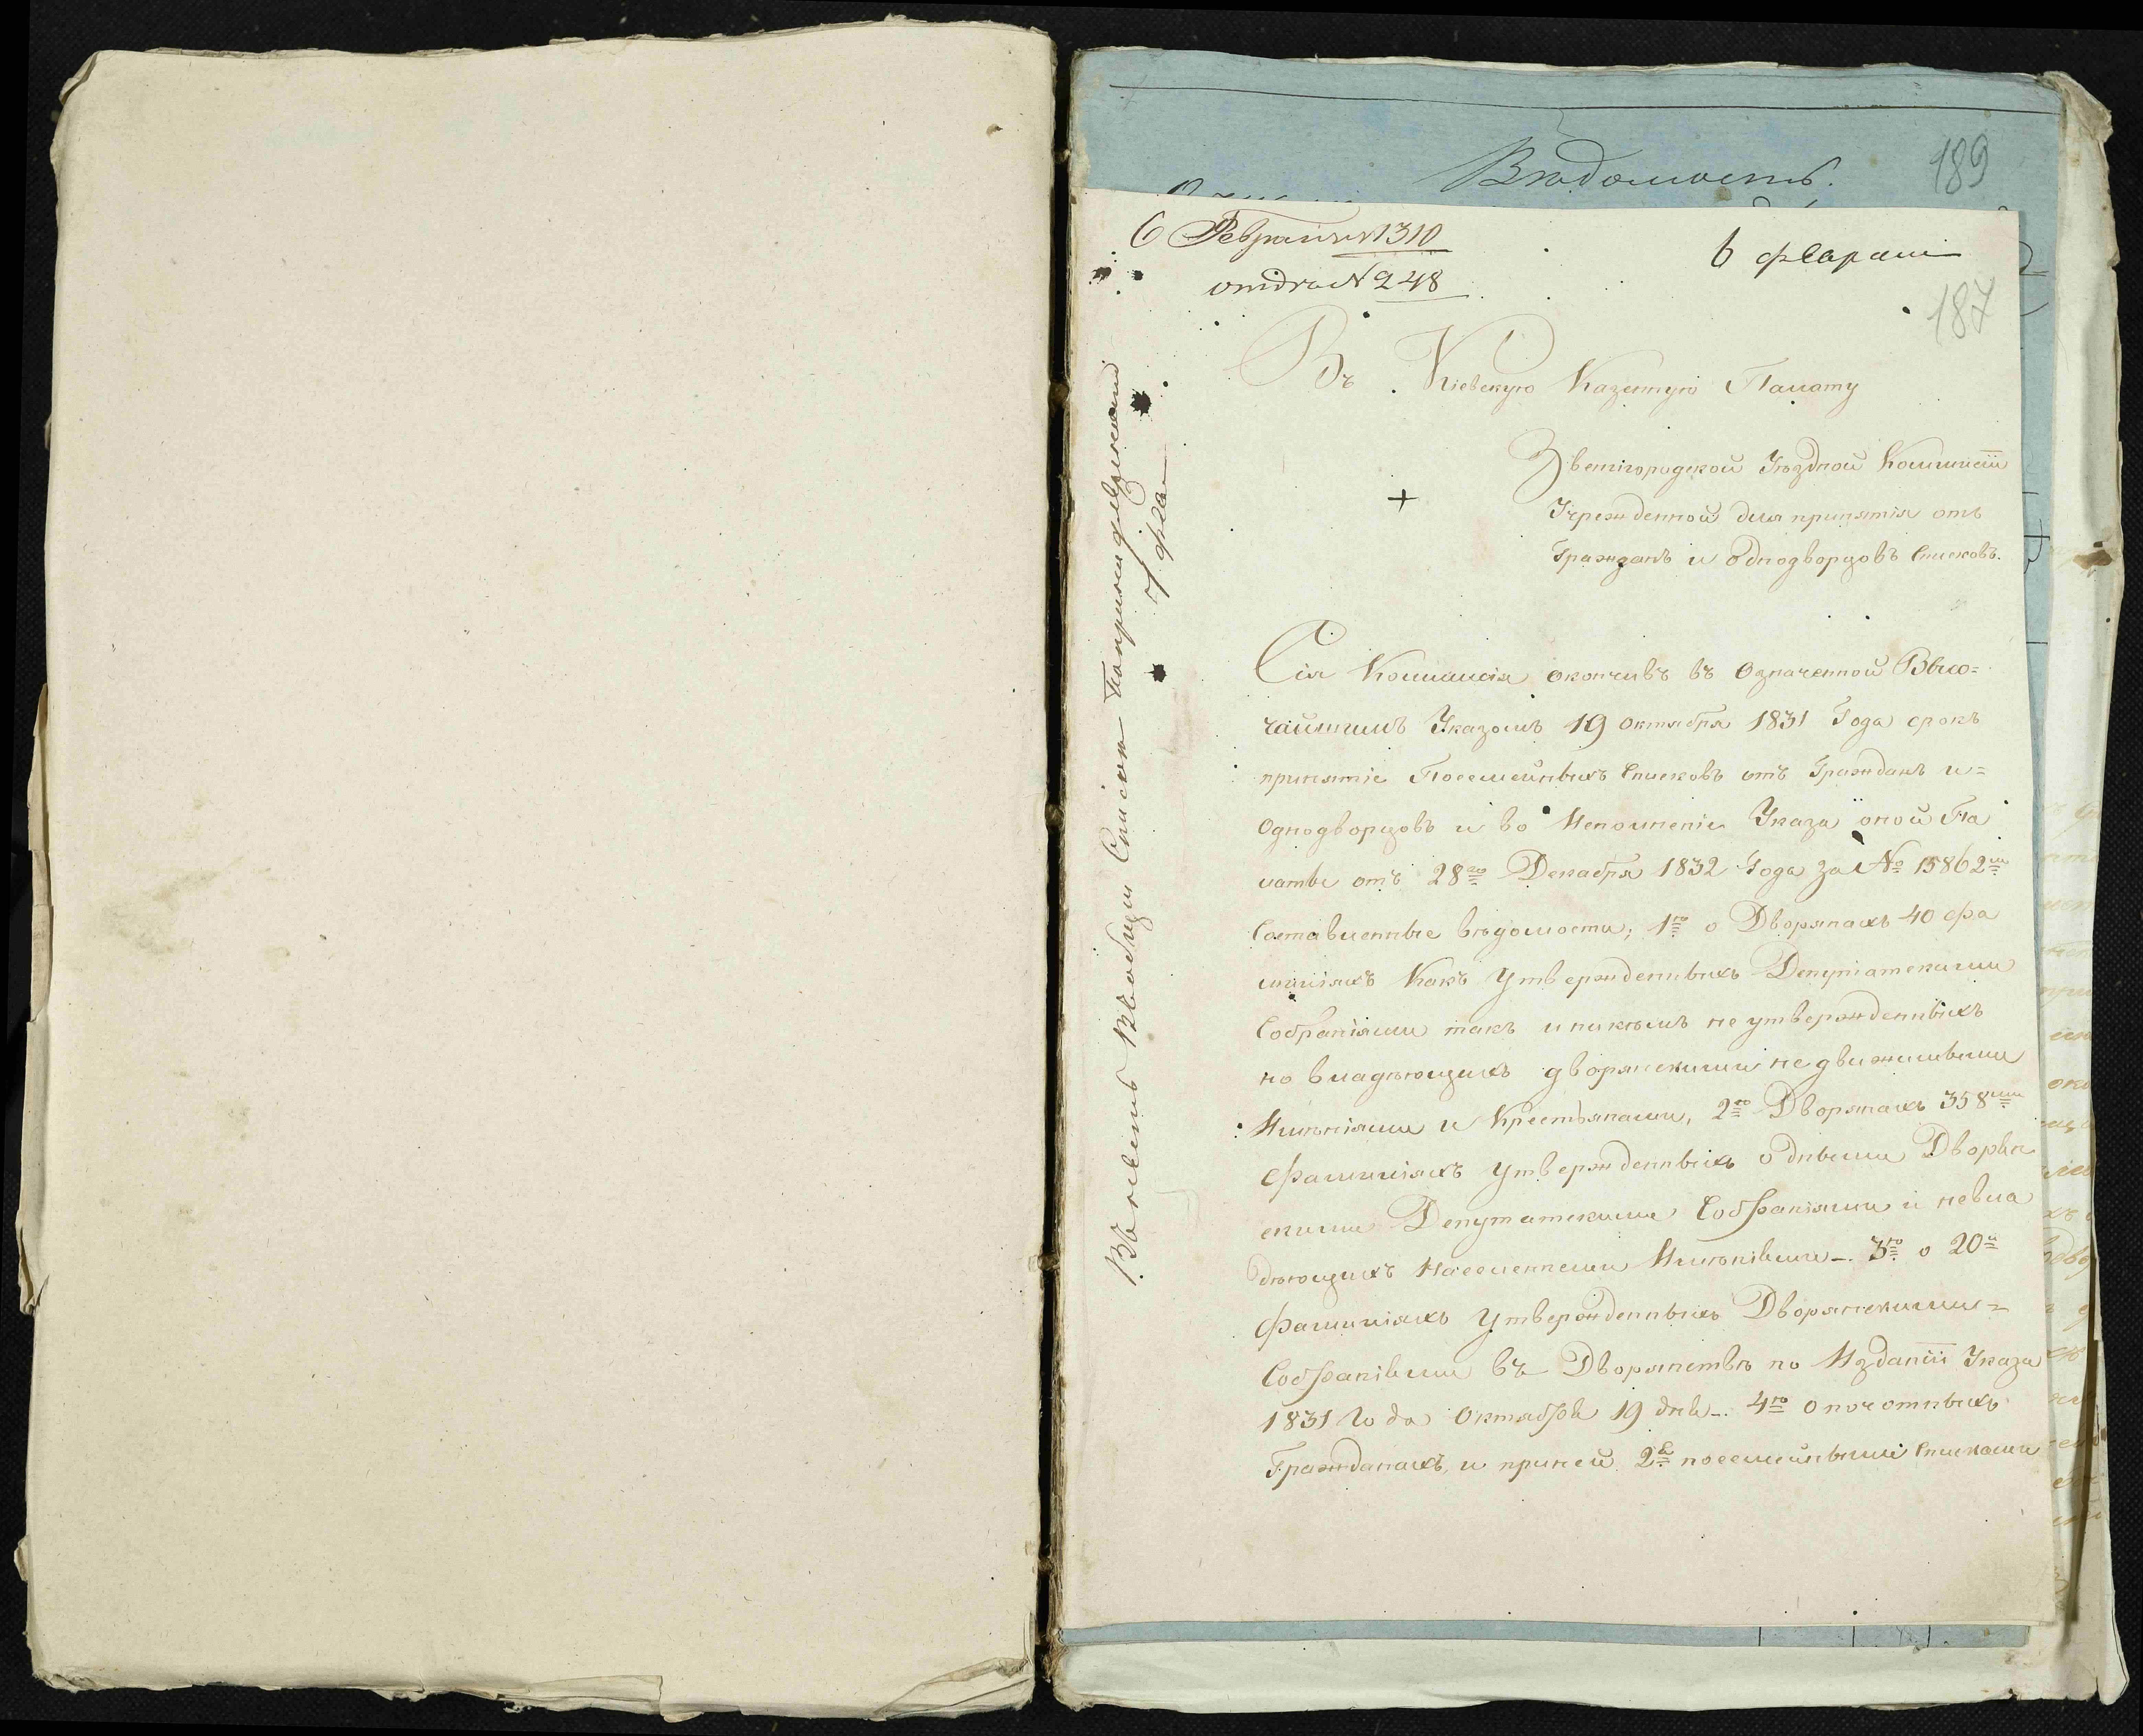 Вѣдомость.
189
6 Февраля №1310
отдѣл №248
6 февраля
187
Въ Кіевскую Казенную Палату
Звенигородской Уѣздной Коммисіи
Учрежденной для принятія отъ
Гражданъ и Однодворцовъ Списковъ.
Сія Коммисія окончивъ въ Означенной Высо=
чайшимъ Указомъ 19 октября 1831 Года срокъ
принятіе Посемейныхъ Списковъ отъ Гражданъ и=
Однодворцовъ и во Исполненіе Указа оной Па
латы отъ 28го Декабря 1832 Года за № 15862м
Составленные вѣдомости; 1го о Дворянахъ 40 фа
миліяхъ Какъ Утвержденныхъ Депутатскими
Собраніями такъ и никѣмъ не утвержденныхъ
но владѣющихъ дворянскими недвижимыми
Имѣніями и Крестьянами, 2го Дворянахъ 358ми
Фамиліяхъ Утвержденныхъ однѣми Дворян
скими Депутатскими Собраніями и невла
дѣющихъ Населенными Имѣніями – 3го о 20и
Фамиліяхъ Утвержденныхъ Дворянскими=
Собраніями въ Дворянствѣ по Изданіи Указа
1831 Года Октября 19 дня – 4го о почотныхъ
Гражданахъ, и приней 2е посемейными Списками
7 фев